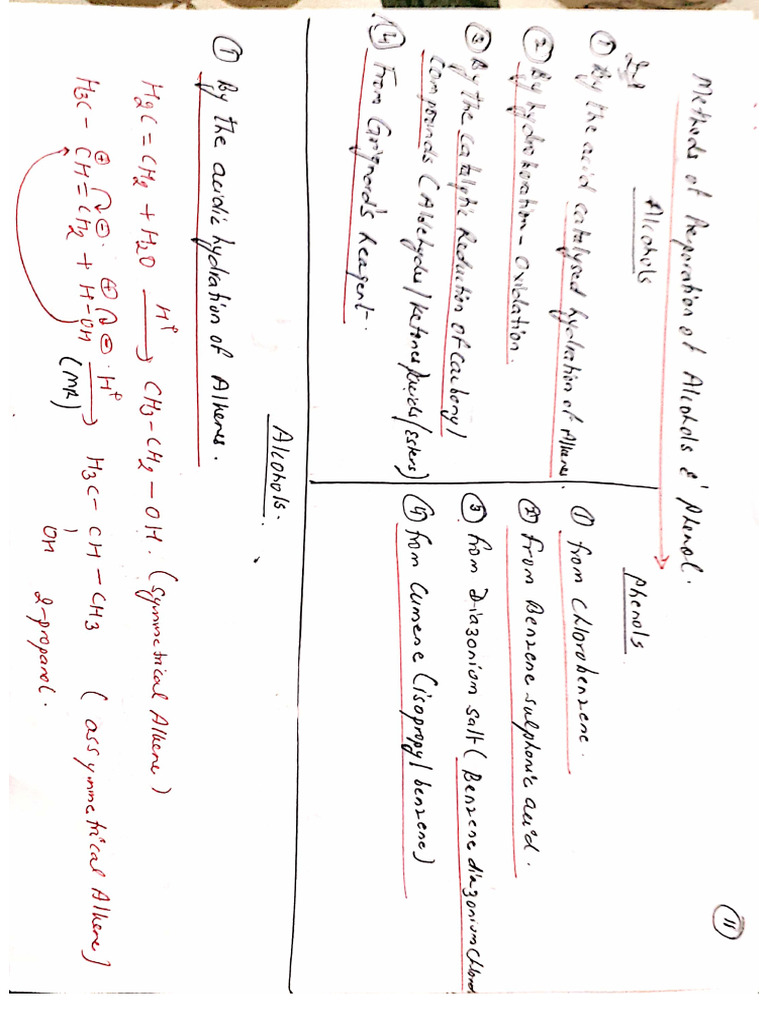 11
Methods of Preparation of Alcohols & Phenol.
Alcohols
① By the acid catalysed hydration of Alkenes.
② By hydroboration - Oxidation
③ By the Catalytic Reduction of Carbonyl
Compounds (Aldehydes/Ketones/Acids/Esters)
④ From Grignard's Reagent.
Phenols
① from Chlorobenzene.
② From Benzene sulphonic acid.
③ from Diazonion salt (Benzene diazonium chlorid
④ from Cumene (isopropyl benzene)
Alcohols.
① By the acidic hydration of Alkenes.
H2C=CH2 + H2O H⁺ → CH3-CH2-OH. (symmetrical Alkene)
⊕ ⊖ ⊕ ⊖ H⁺
H3C-CH=CH2 + H-OH → H3C-CH-CH3 (assymmetrical Alkene)
(MR) OH 2-propanol.